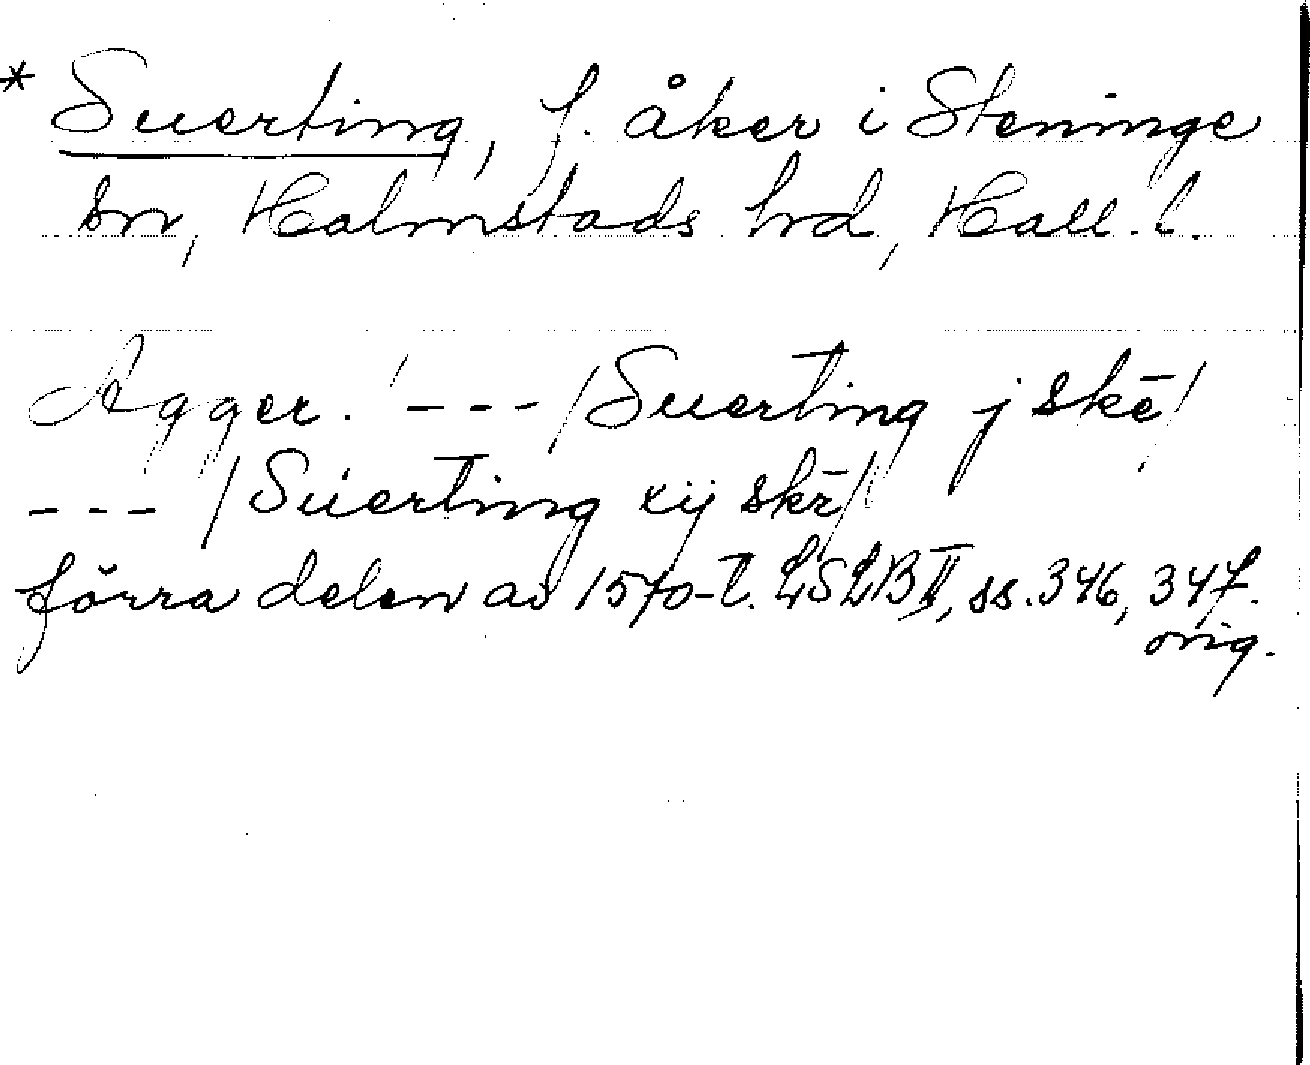 * Suerting, f. åker i Steninge
sn, Halmstads hrd, Hall. l.
Agger. ! - - - / Suerting j skē /
- - - / Suerting xij skr̄ /
förra delen av 1570-t. LSLB II, ss. 346, 347.
orig.